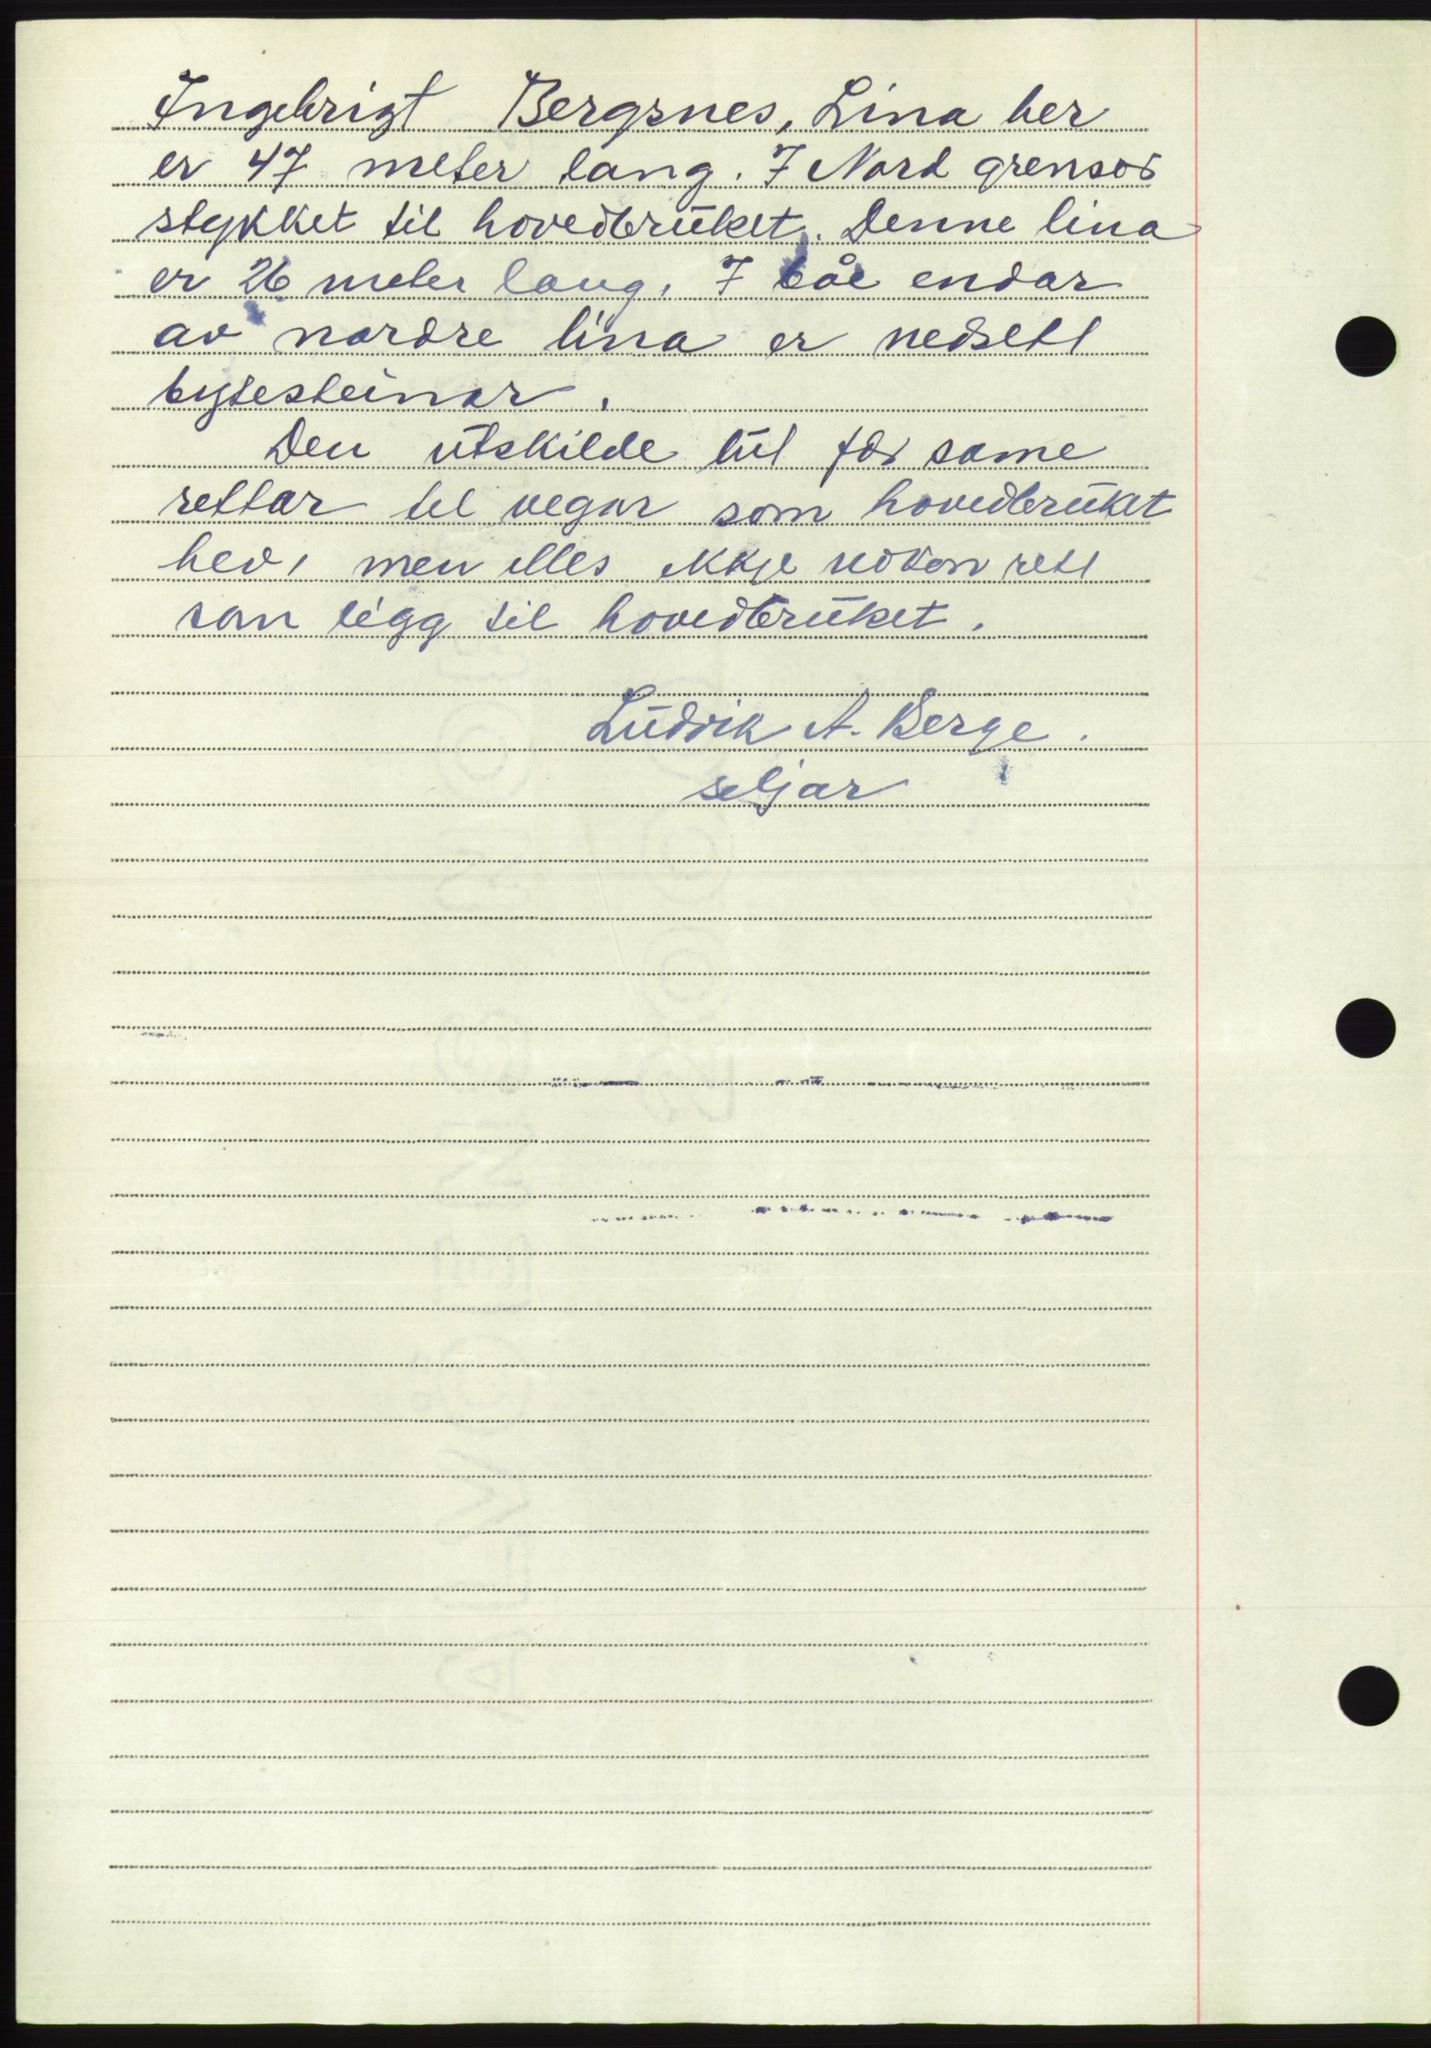 Ingebrigt Bergsnes, Lina her
er 47 meter lang. I Nord grensar
stykket til hovedbruket. Denne lina
er 26 meter lang. I båe endar
av nordre lina er nedsett
bytesteinar.
Den utskilde lut fær same
rettar til vegar som hovedbruket
hev, men elles ikkje nokon rett
som ligg til hovedbruket.
Ludvik A. Berge.
seljar